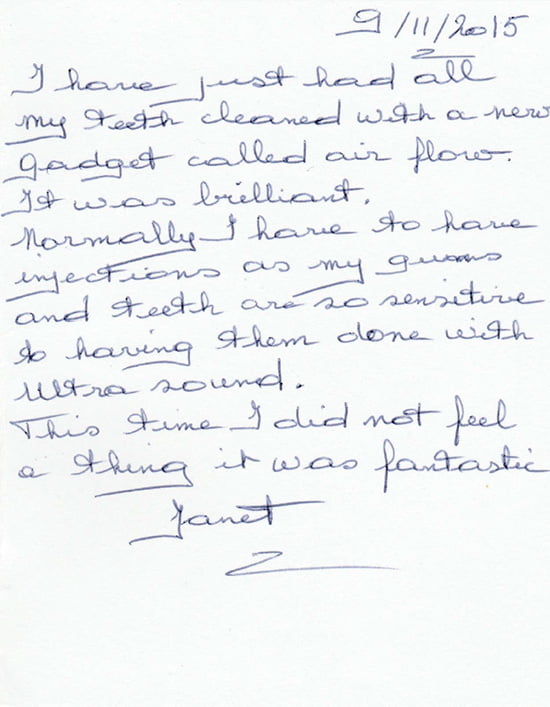 9/11/2015
I have just had all
my teeth cleaned with a new
gadget called air flow.
It was brilliant.
Normally I have to have
injections as my gums
and teeth are so sensitive
to having them done with
Ultra sound.
This time I did not feel
a thing it was fantastic
Janet